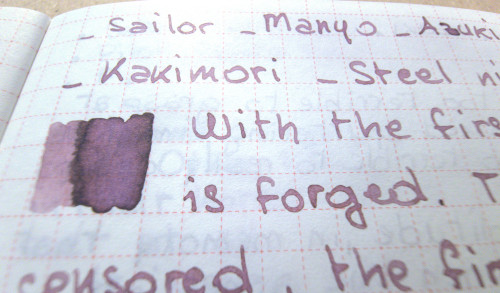 - Sailor - Manyo - Azuki
- Kakimori - Steel ni
With the firs
is forged. T
censored, the fir